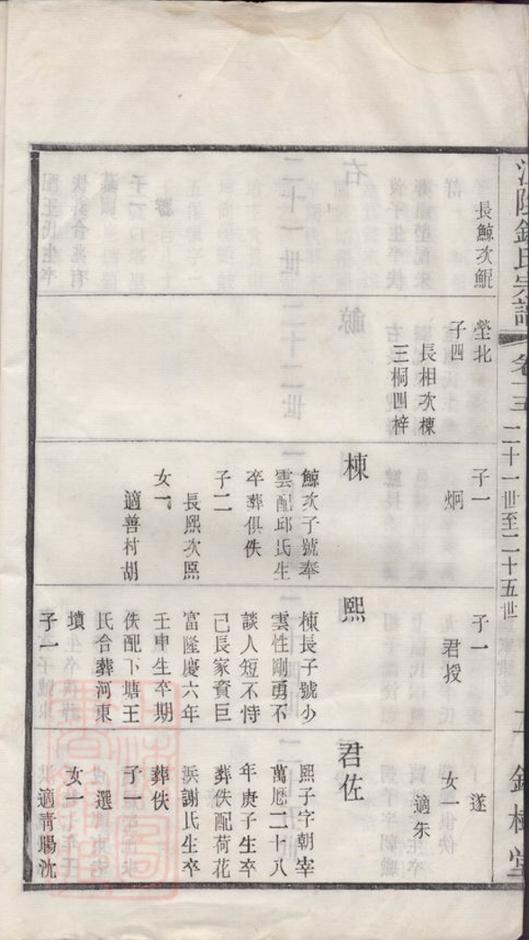 二十一世至二十五世
長鯨次鯤
塋北
子四
長相次棟
三桐四梓
子一
炯
棟
鯨次子號奉
雲配邱氏生
卒葬俱佚
子二
長熙次照
女一
適善村胡
子一
君授
熙
棟長子號少
雲性剛勇不
談人短不恃
己長家資巨
富隆慶六年
壬申生卒期
佚配下塘王
氏合葬河東
墳
子一
遂
女一
適朱
君佐
熙子字朝宰
萬厯二十八
年庚子生卒
葬佚配荷花
浜謝氏生卒
葬佚
子一
選
女一
適青暘沈